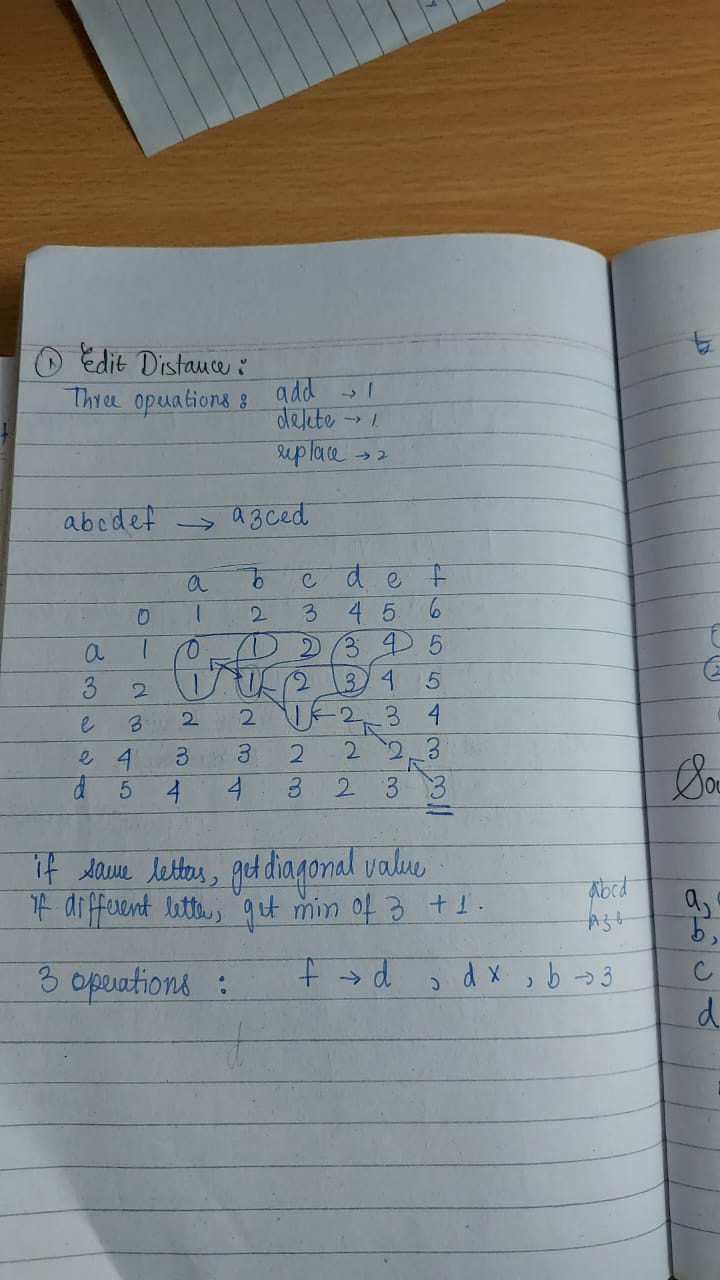 ① Edit Distance :
Three operations : add → 1
delete → 1
replace → 2
abcdef → a3ced
a b c d e f
0 1 2 3 4 5 6
a 1 0 1 2 3 4 5
3 2 1 1 2 3 4 5
c 3 2 2 1 2 3 4
e 4 3 3 2 2 2 3
d 5 4 4 3 2 3 3
if same letters, get diagonal value
if different letter, get min of 3 + 1.
abcd
3 operations : f → d , d x , b → 3
a,
b,
c
d